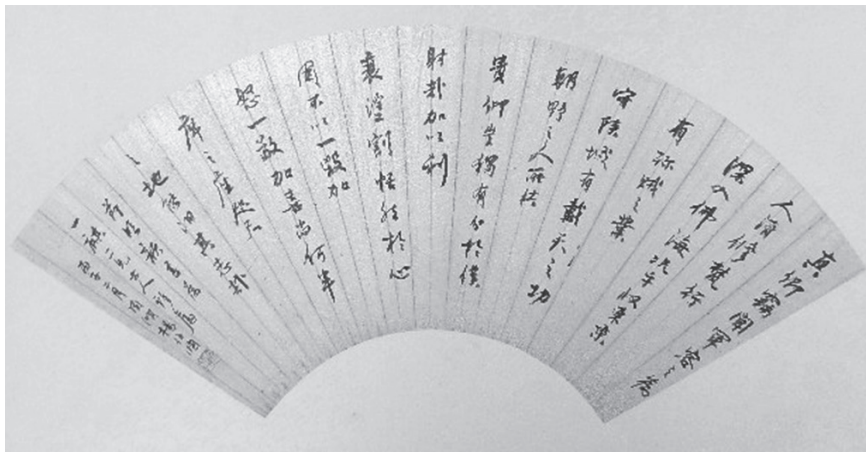 真卿竊聞軍容之為
人清修梵行
深入佛海況乎收東京
有殄賊之業
守陝城有戴天之功
朝野之人所共
貴仰豈獨有分於僕
射哉加以利
衰塗割恬然於心
固不以一毀加
怒一敬加喜尚何半
席之座咫尺
之地能汩其志哉
節臨
一麒二兄大人